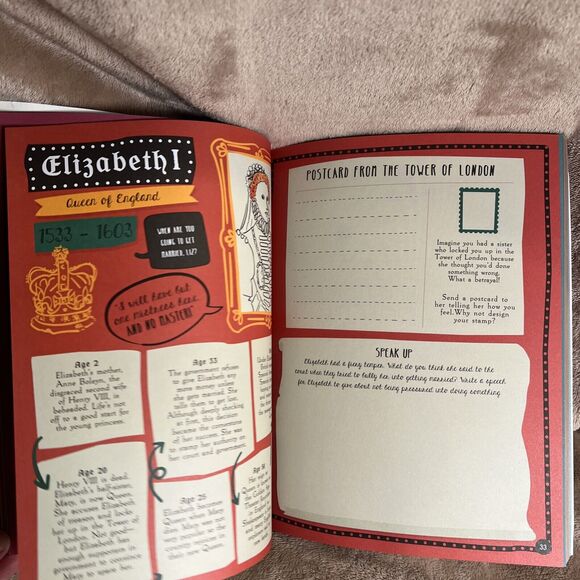 Elizabeth I
Queen of England
1533 – 1603
WHEN ARE YOU
GOING TO GET
MARRIED, LIZ?
"I will have but
one mistress here,
AND NO MASTER!"
Age 2
Elizabeth's mother,
Anne Boleyn, the
disgraced second wife
of Henry VIII, is
beheaded. Life's not
off to a good start for
the young princess.
Age 20
Henry VIII is dead.
Elizabeth's half-sister,
Mary, is now Queen.
She accuses Elizabeth
of treason and locks
her up in the Tower of
London. Not good—
but Elizabeth has
enough supporters in
government to convince
Mary to spare her.
Age 33
The government refuse
to give Elizabeth any
more money unless
she gets married. She
tells them to get lost.
Although deeply shocking
at first, this decision
became the cornerstone
of her success. She was
to stamp her authority on
her court and government.
Age 25
Elizabeth becomes
Queen when Mary dies.
Queen Mary was not
very popular so the
country rejoices in
their new Queen.
POSTCARD FROM THE TOWER OF LONDON
Imagine you had a sister
who locked you up in the
Tower of London because
she thought you'd done
something wrong.
What a betrayal!
Send a postcard to
her telling her how you
feel. Why not design
your stamp?
SPEAK UP
Elizabeth had a fiery temper. What do you think she said to the
court when they tried to bully her into getting married? Write a speech
for Elizabeth to give about not being pressured into doing something.
33